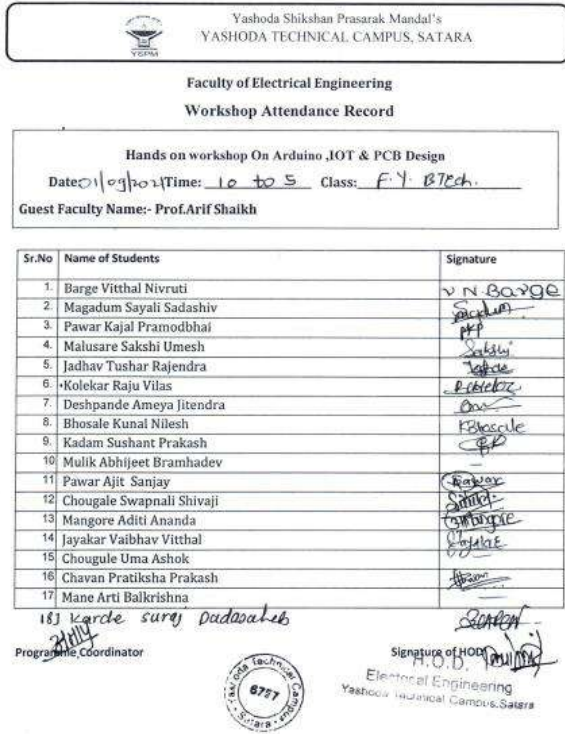 YSPM
Yashoda Shikshan Prasarak Mandal's
YASHODA TECHNICAL CAMPUS, SATARA
Faculty of Electrical Engineering
Workshop Attendance Record
Hands on workshop On Arduino ,IOT & PCB Design
Date: 01/09/2021 Time: 10 to 5 Class: F.Y. BTech.
Guest Faculty Name:- Prof.Arif Shaikh
Sr.No Name of Students Signature
1. Barge Vitthal Nivruti V N Barge
2. Magadum Sayali Sadashiv
3. Pawar Kajal Pramodbhai PKP
4. Malusare Sakshi Umesh Sakshi
5. Jadhav Tushar Rajendra
6. Kolekar Raju Vilas
7. Deshpande Ameya Jitendra
8. Bhosale Kunal Nilesh KBhosale
9. Kadam Sushant Prakash
10 Mulik Abhijeet Bramhadev —
11 Pawar Ajit Sanjay Pawar
12 Chougale Swapnali Shivaji
13 Mangore Aditi Ananda Mangore
14 Jayakar Vaibhav Vitthal
15 Chougule Uma Ashok
16 Chavan Pratiksha Prakash
17 Mane Arti Balkrishna —
18] Karde suraj Dadasaheb
Programme Coordinator Signature of HOD
H.O.D.
Electrical Engineering
Yashoda Technical Campus, Satara
Yashoda Technical Campus
6757
Satara